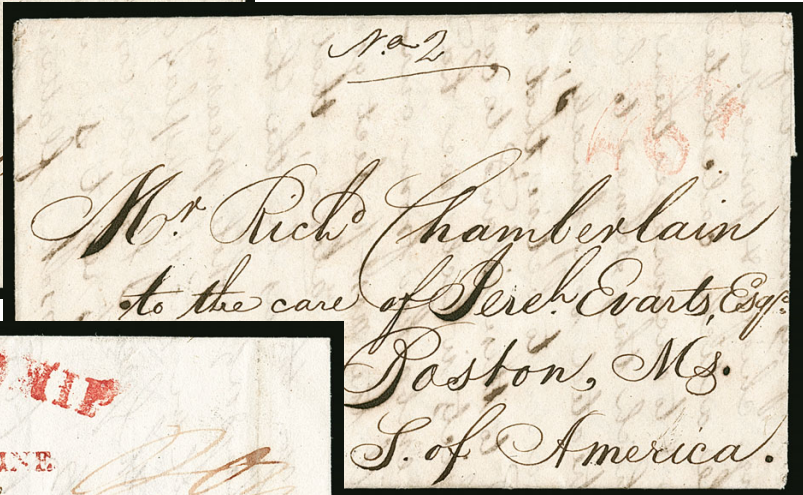 No 2
Mr Richd Chamberlain
to the care of Jereh. Evarts, Esqr.
Boston, Ms.
S. of America.
HIP
INE